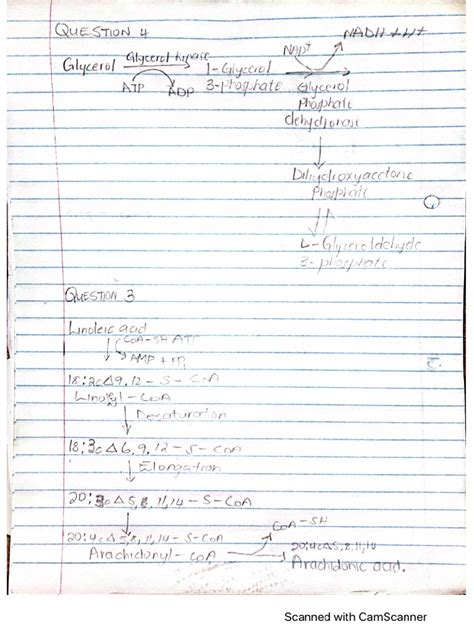 QUESTION 4
NADH + H+
Glycerol Glycerol kinase NAD+
ATP ADP
1-Glycerol
3-phosphate
Glycerol
Phosphate
dehydrogenase
Dihydroxyacetone
Phosphate
L-Glyceraldehyde
3-phosphate
QUESTION 3
Linoleic acid
CoA-SH ATP
AMP + PPi
18:2cΔ9,12-S-CoA
Linoleyl-CoA
Desaturation
18:3cΔ6,9,12-S-CoA
Elongation
20:3cΔ5,8,11,14-S-CoA
CoA-SH
20:4cΔ5,8,11,14-S-CoA
Arachidonyl-CoA
20:4cΔ5,8,11,14
Arachidonic acid.
Scanned with CamScanner